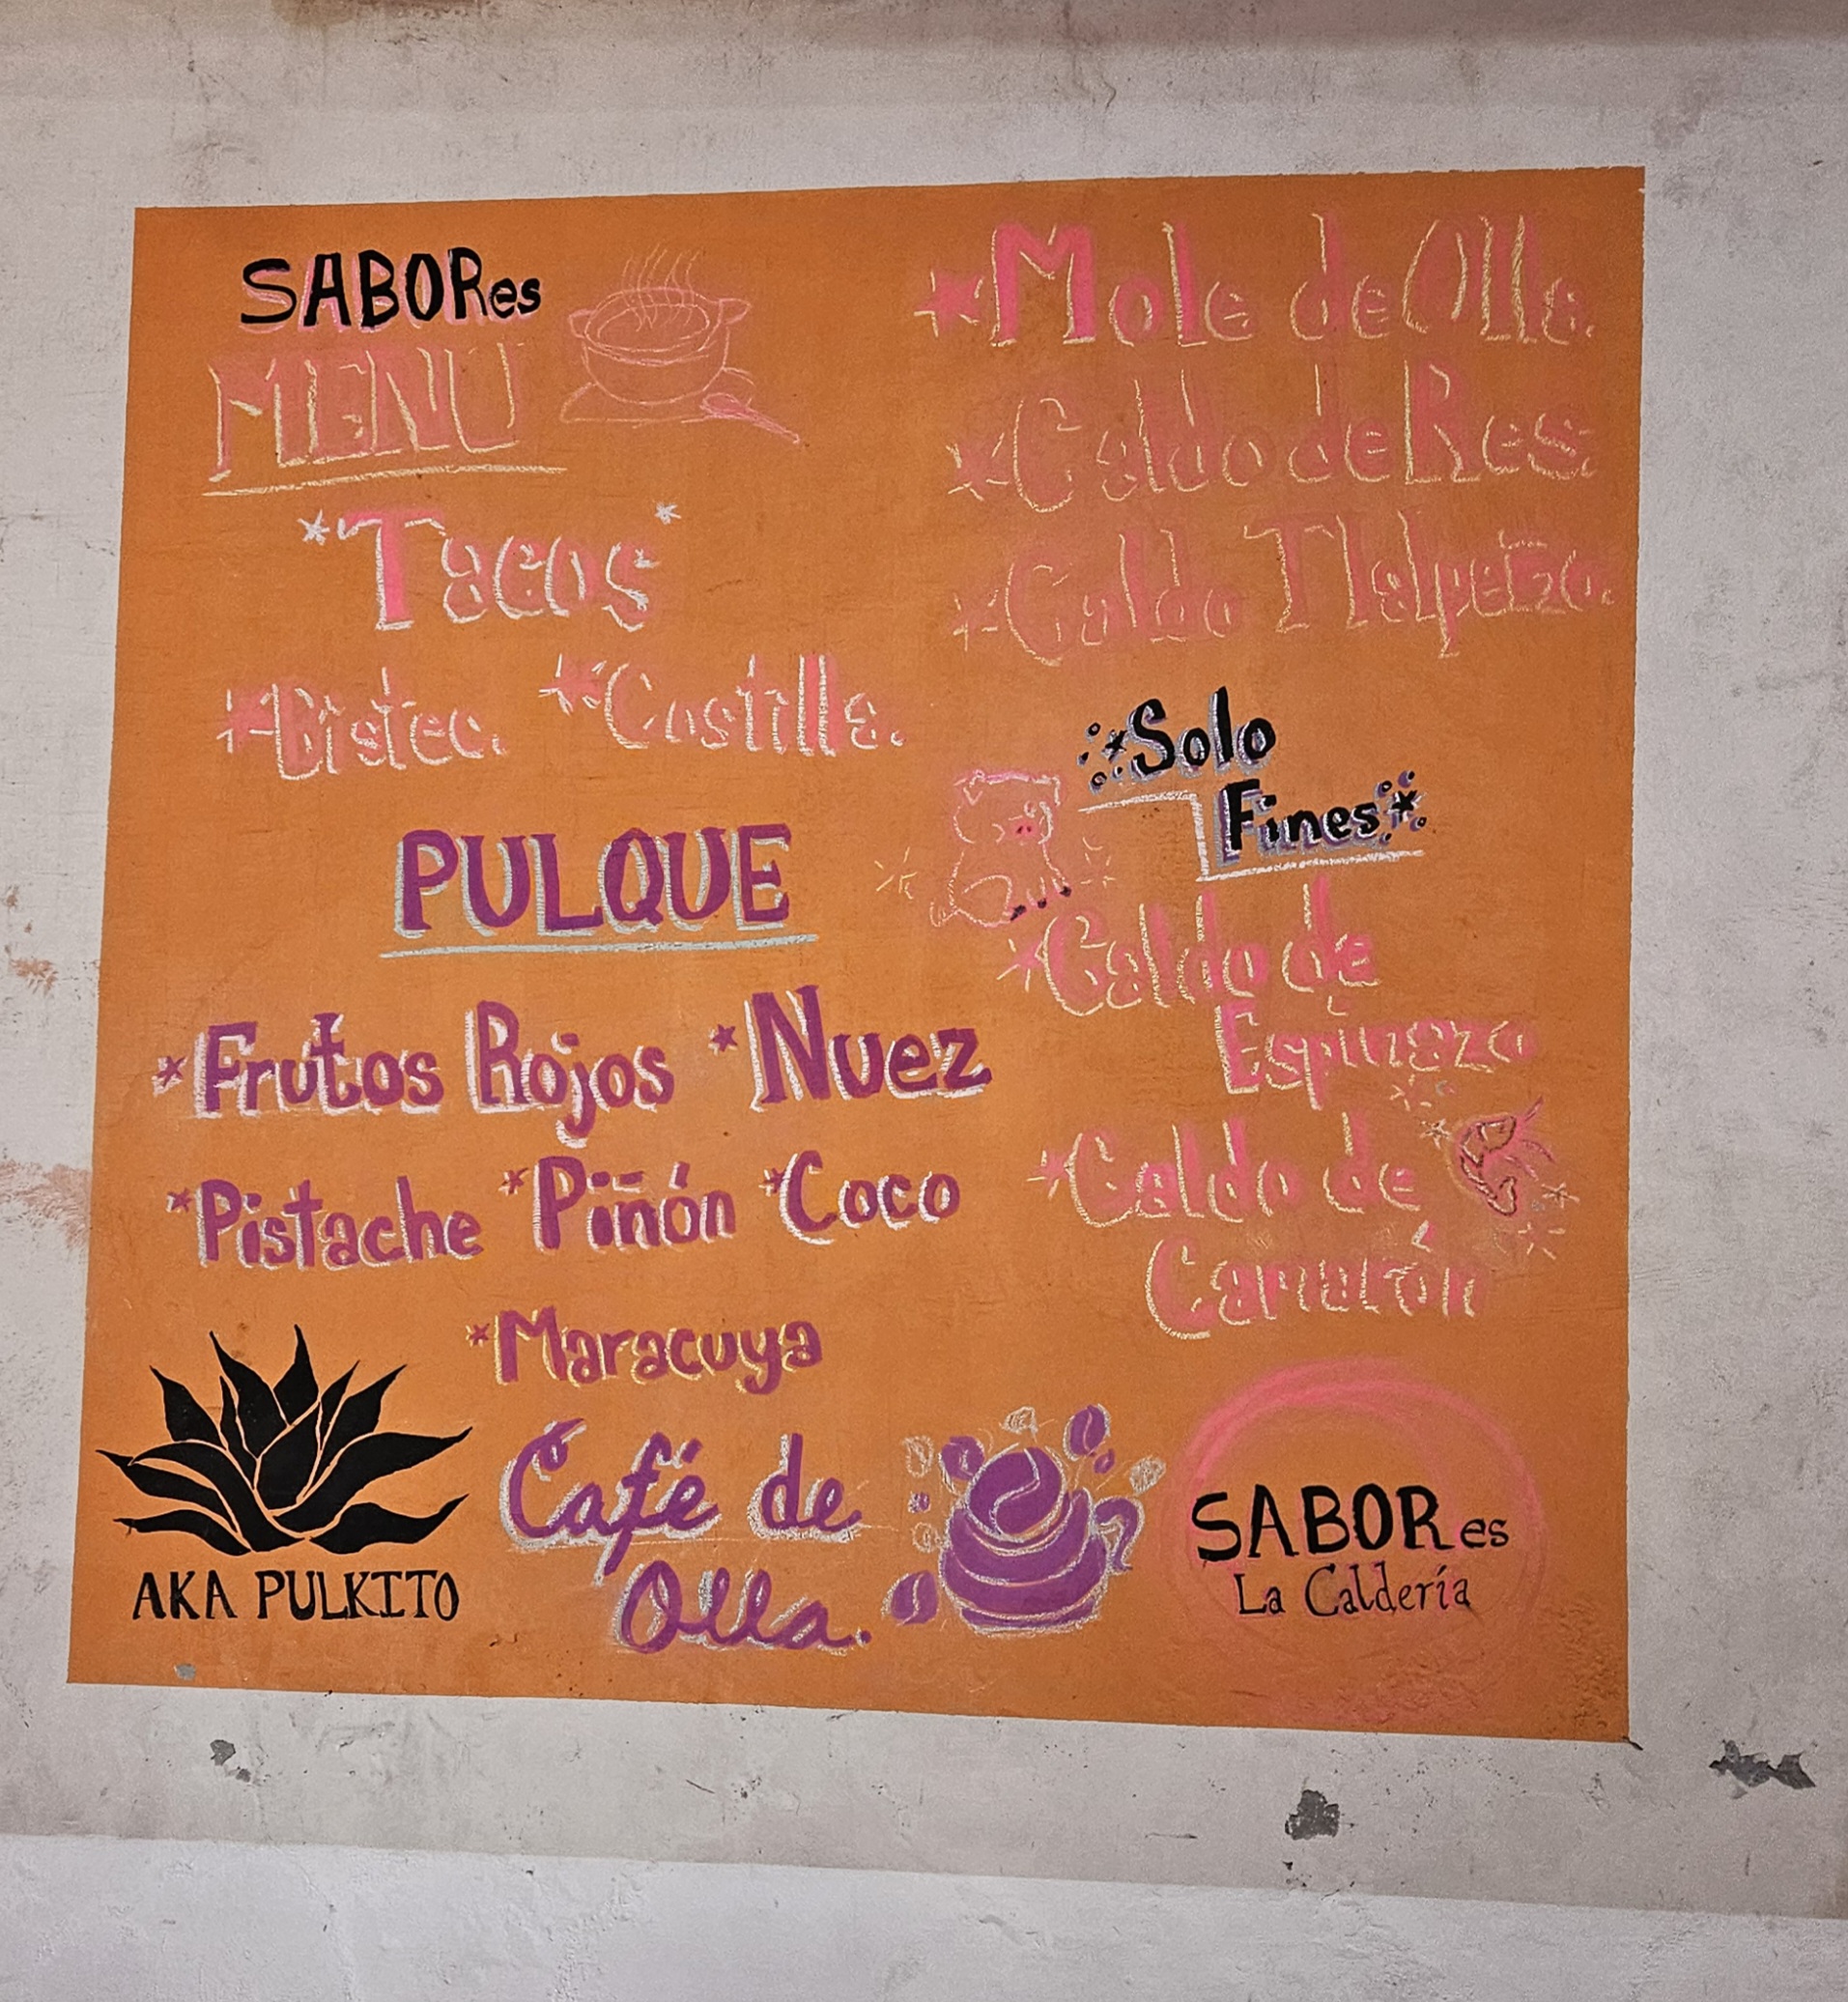 SABORes
MENU
*Tacos*
*Bistec. *Costilla.
PULQUE
*Frutos Rojos *Nuez
*Pistache *Piñón *Coco
*Maracuya
Café de
Olla.
AKA PULKITO
*Mole de Olla.
*Caldo de Res.
*Caldo Tlalpeño.
*Solo
Fines*
*Caldo de
Espinazo
*Caldo de
Camarón
SABORes
La Caldería